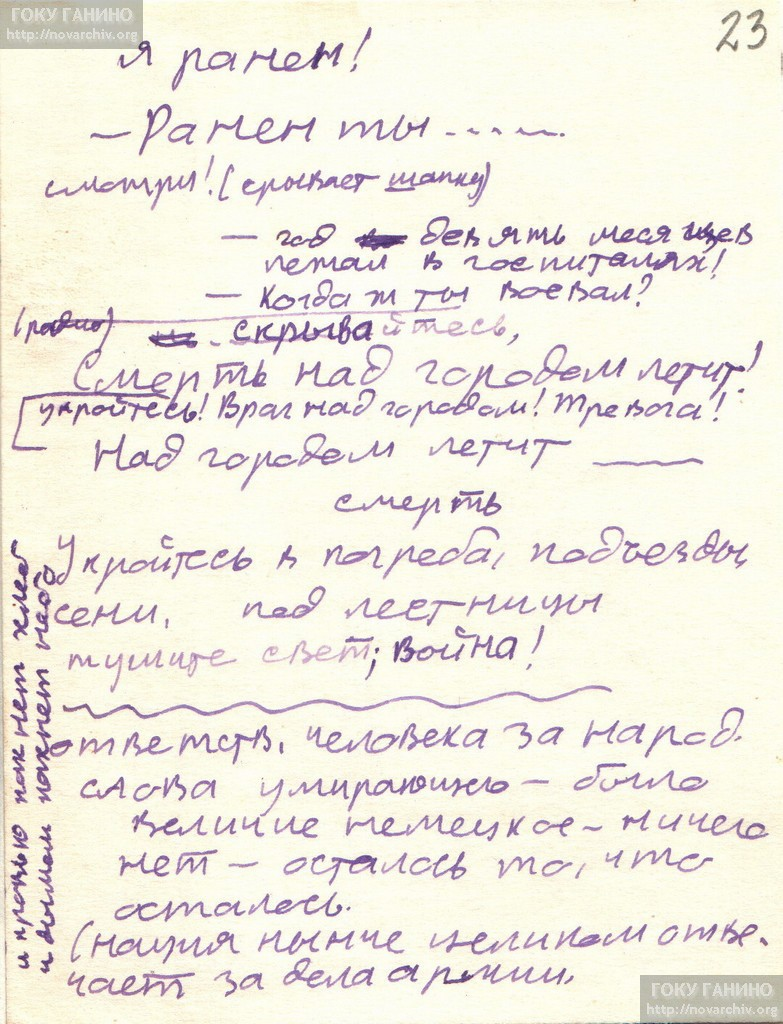 ГОКУ ГАНИНО
http://novarchiv.org
23
я ранен!
— Ранен ты.....
смотри! (срывает шапку)
— год девять месяцев
лежал в госпиталях!
— Когда ж ты воевал?
(радио) скрывайтесь,
Смерть над городом летит!
укройтесь! Враг над городом! Тревога!
Над городом летит
смерть
Укройтесь в погреба, подъезды,
сени, под лестницы
тушите свет; война!
ответств. человека за народ.
слова умирающего — было
величие немецкое — ничего
нет — осталось то, что
осталось.
(нация нынче целиком отве-
чает за дела армии.
и кровью пахнет хлеб
и дымом пахнет небо
ГОКУ ГАНИНО
http://novarchiv.org